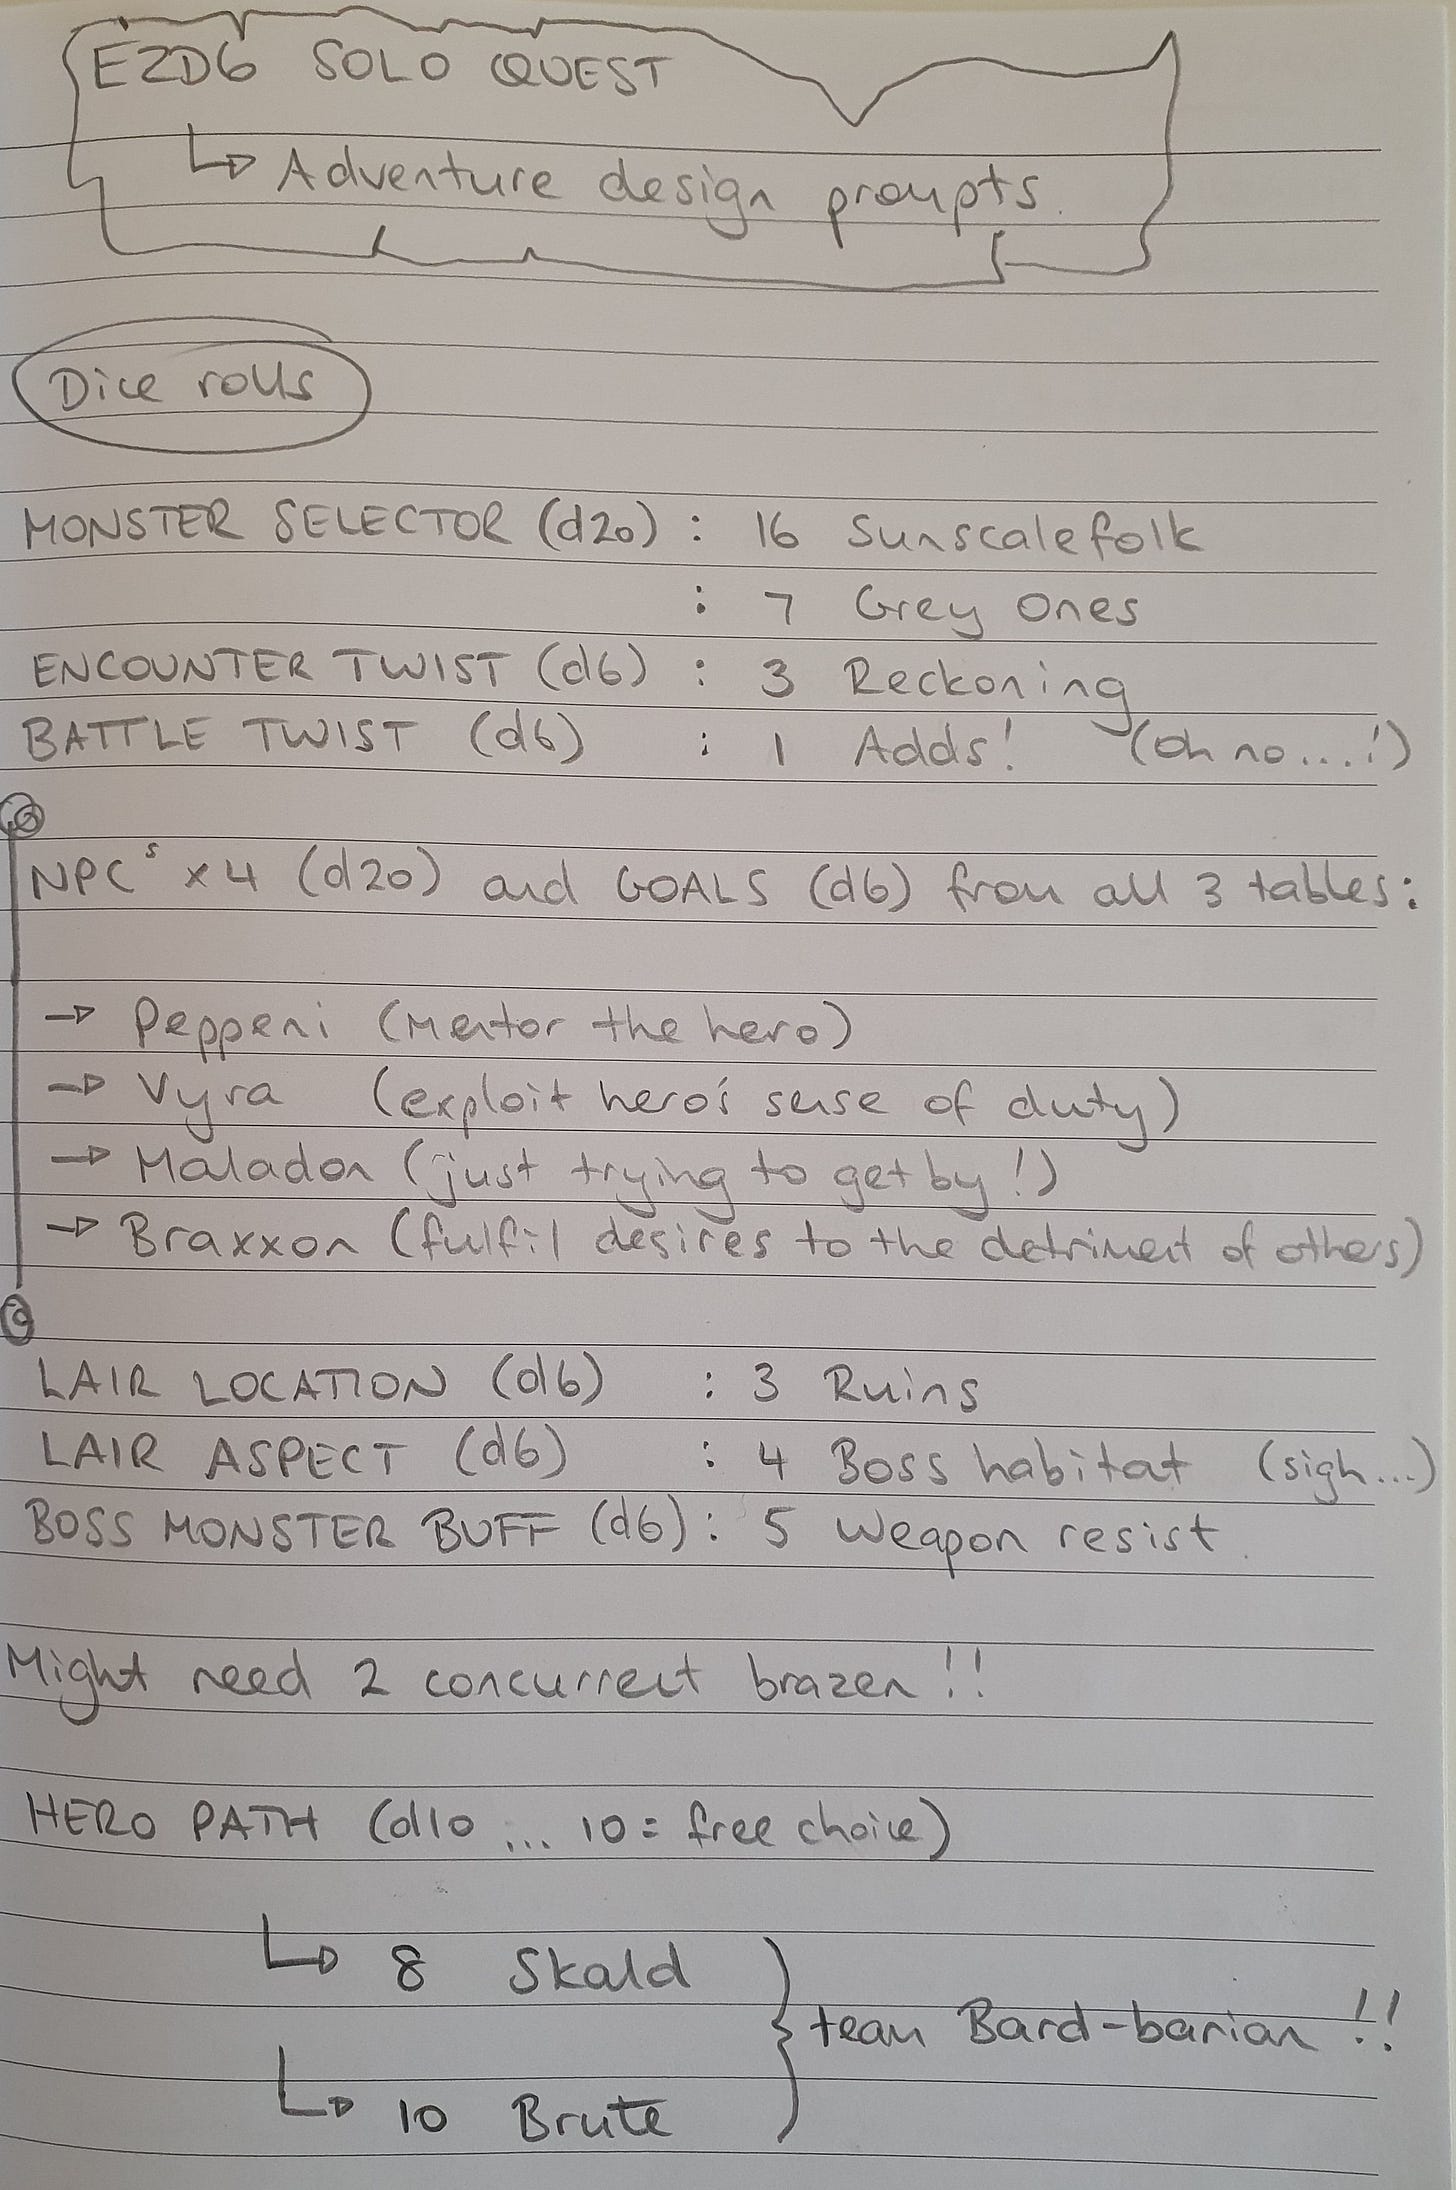 EZD6 SOLO QUEST
↳ Adventure design prompts.
Dice rolls
MONSTER SELECTOR (d20) : 16 Sunscalefolk
: 7 Grey Ones
ENCOUNTER TWIST (d6) : 3 Reckoning
BATTLE TWIST (d6) : 1 Adds! (oh no....!)
NPCs x 4 (d20) and GOALS (d6) from all 3 tables:
→ Peppeni (Mentor the hero)
→ Vyra (exploit hero's sense of duty)
→ Maladon (just trying to get by!)
→ Braxxon (fulfil desires to the detriment of others)
LAIR LOCATION (d6) : 3 Ruins
LAIR ASPECT (d6) : 4 Boss habitat (sigh...)
BOSS MONSTER BUFF (d6) : 5 Weapon resist.
Might need 2 concurrent brazen!!
HERO PATH (d10 ... 10 = free choice)
↳ 8 Skald
} team Bard-barian!!
↳ 10 Brute